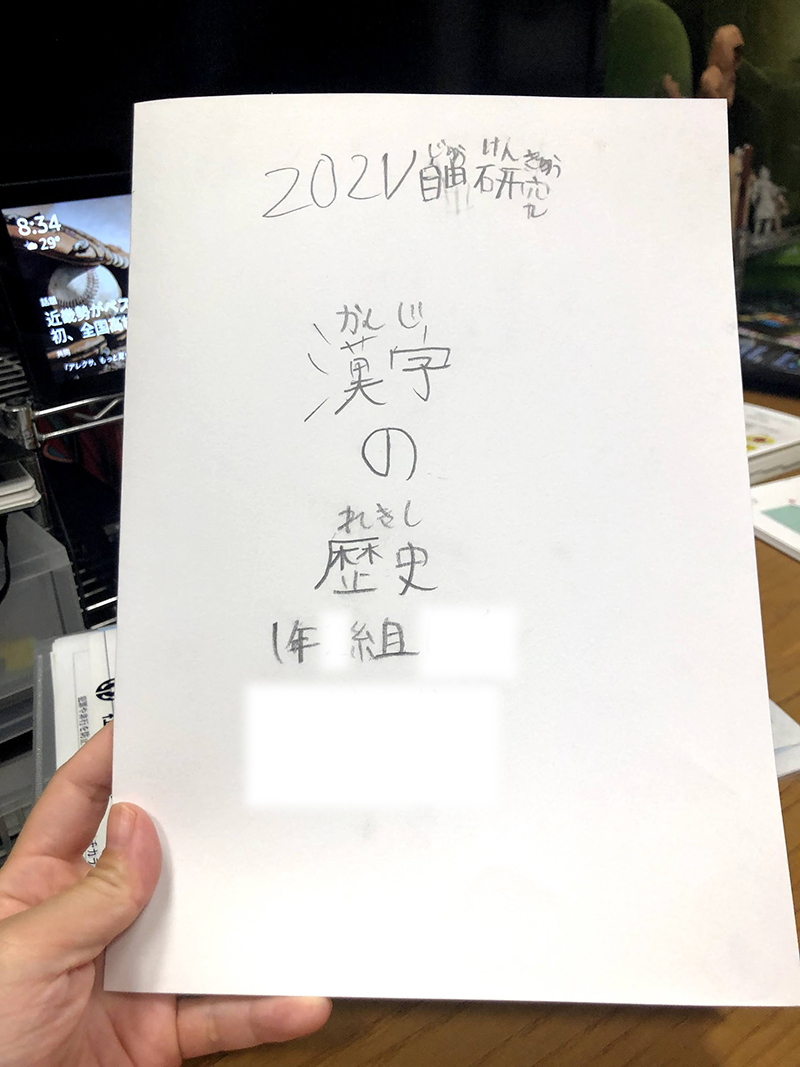 8:34
29°
話題
近畿勢がベス
初、全国高
「アレクサ、もっと見
じゆう けん きゅう
2021自由研究
かんじ
漢字
の
れきし
歴史
1年 組